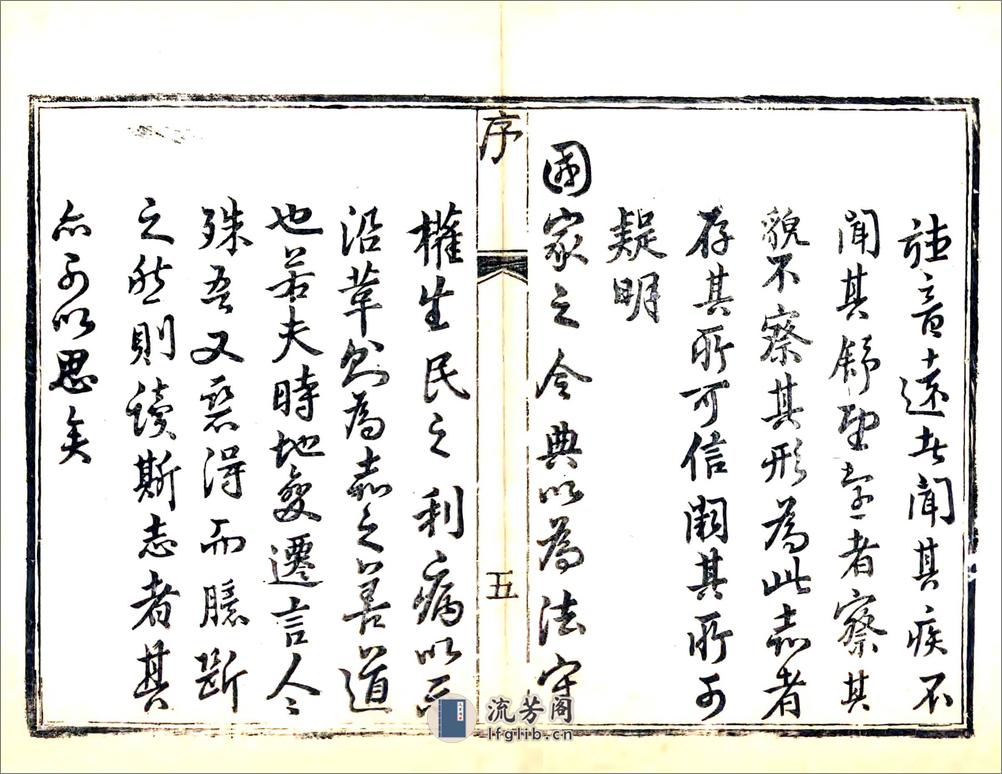 聽音遠者聞其疾不
聞其舒望遠者察其
貌不察其形為此志者
存其所可信闕其所可
疑明
國家之令典以為法守
序
五
權生民之利病以
沿革則為志之善道
也若夫時地變遷言人人
殊吾又惡得而臆斷
之然則讀斯志者其
亦可以思矣
流芳阁
lfglib.cn